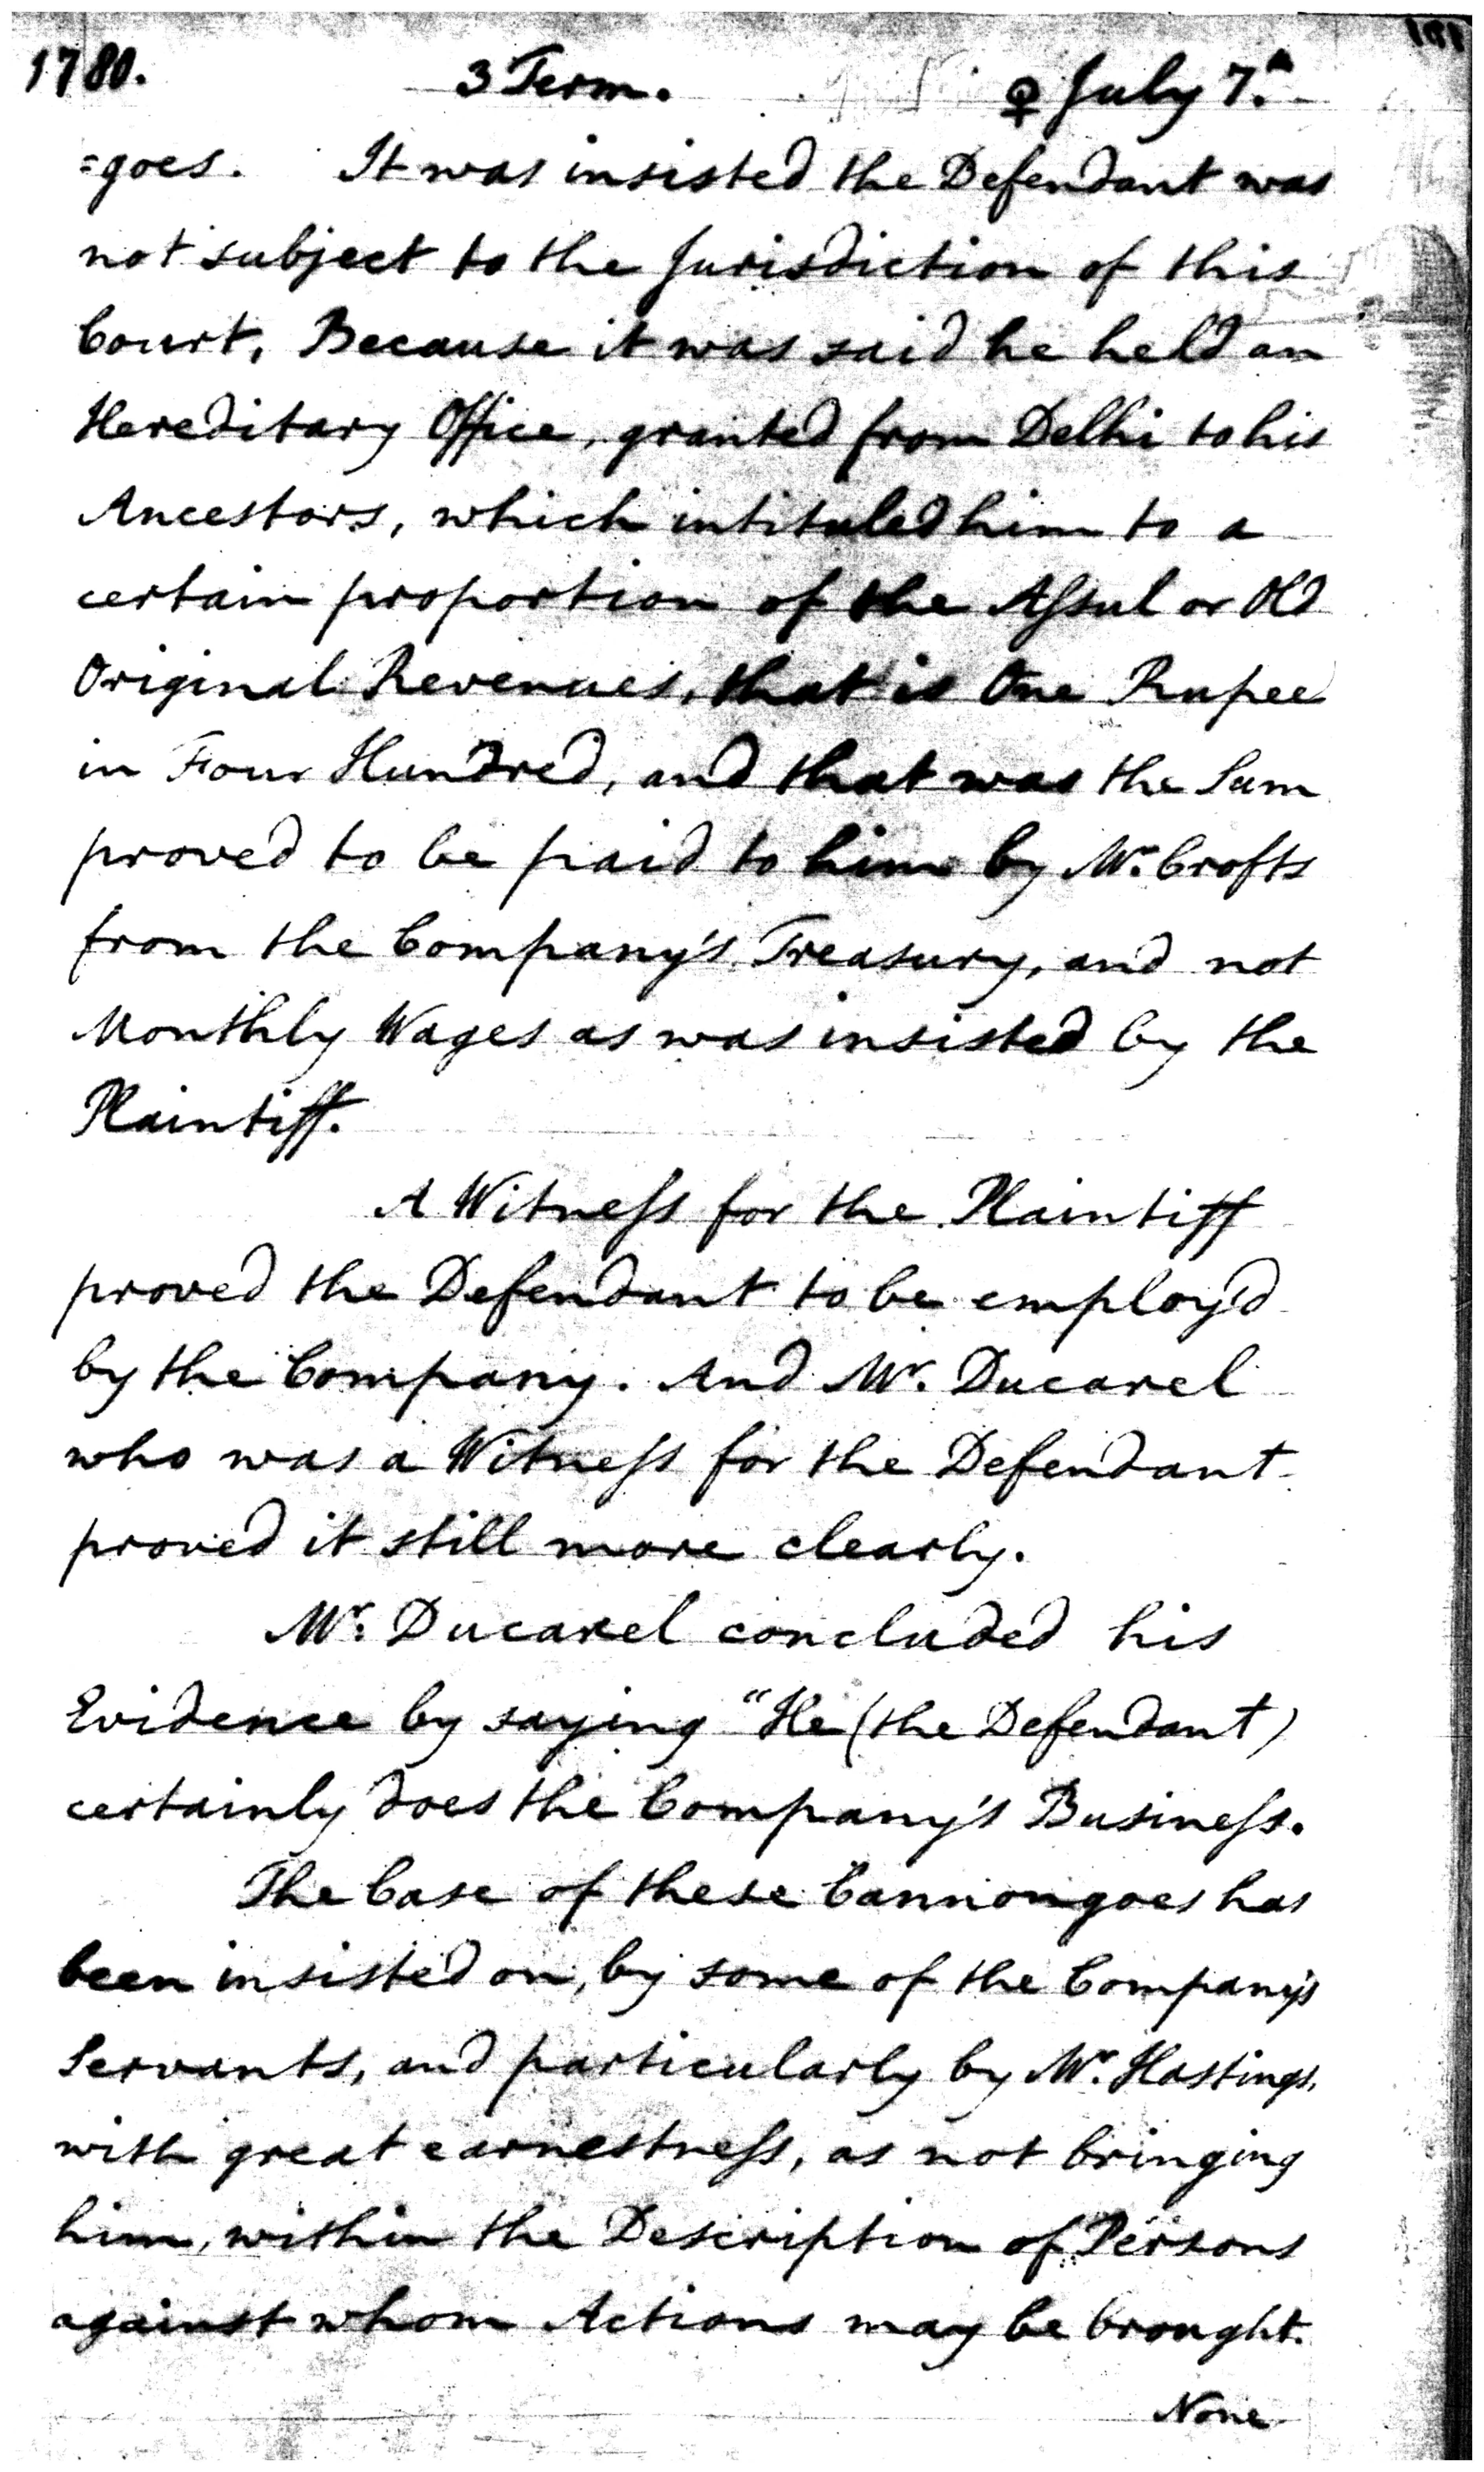 1780. 3 Term. ♀ July 7.th
=goes. It was insisted the Defendant was
not subject to the Jurisdiction of this
Court, Because it was said he held an
Hereditary Office, granted from Delhi to his
Ancestors, which intituled him to a
certain proportion of the Aſsul or Old
Original Revenues, that is One Rupee
in Four Hundred, and that was the Sum
proved to be paid to him by Mr. Crofts
from the Company's Treasury, and not
Monthly Wages as was insisted by the
Plaintiff.
A Witneſs for the Plaintiff
proved the Defendant to be employ'd
by the Company. And Mr. Ducarel
who was a Witneſs for the Defendant
proved it still more clearly.
Mr. Ducarel concluded his
Evidence by saying "He (the Defendant)
certainly does the Company's Busineſs.
The Case of these Cannongoes has
been insisted on, by some of the Company's
Servants, and particularly by Mr. Hastings,
with great earnestneſs, as not bringing
him, within the Description of Persons
against whom Actions may be brought.
None